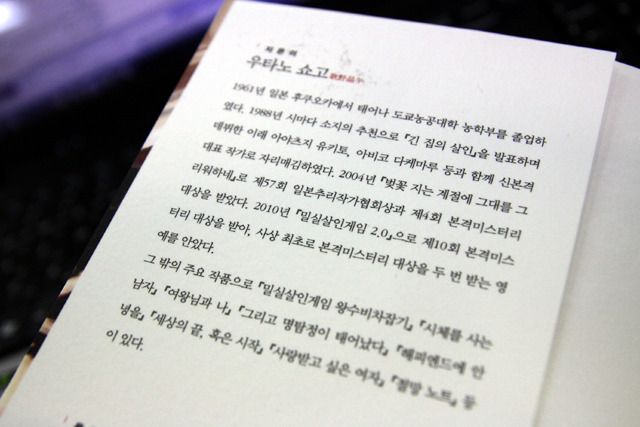 지은이
우타노 쇼고 歌野晶午
1961년 일본 후쿠오카에서 태어나 도쿄농공대학 농학부를 졸업하
였다. 1988년 시마다 소지의 추천으로 『긴 집의 살인』을 발표하며
데뷔한 이래 아야츠지 유키토, 아비코 다케마루 등과 함께 신본격
대표 작가로 자리매김하였다. 2004년 『벚꽃 지는 계절에 그대를 그
리워하네』로 제57회 일본추리작가협회상과 제4회 본격미스터리
대상을 받았다. 2010년 『밀실살인게임 2.0』으로 제10회 본격미스
터리 대상을 받아, 사상 최초로 본격미스터리 대상을 두 번 받는 영
예를 안았다.
그 밖의 주요 작품으로 『밀실살인게임 왕수비차잡기』 『시체를 사는
남자』 『여왕님과 나』 『그리고 명탐정이 태어났다』 『해피엔드에 안
녕을』 『세상의 끝, 혹은 시작』 『사랑받고 싶은 여자』 『절망 노트』 등
이 있다.